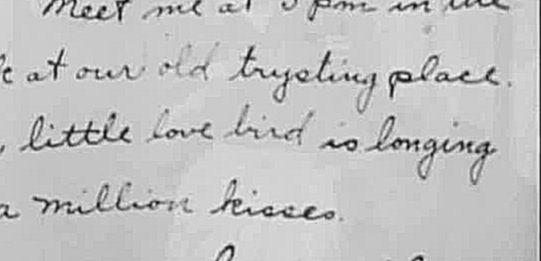 Meet me at 5 pm in the
at our old trysting place.
little love bird is longing
a million kisses.